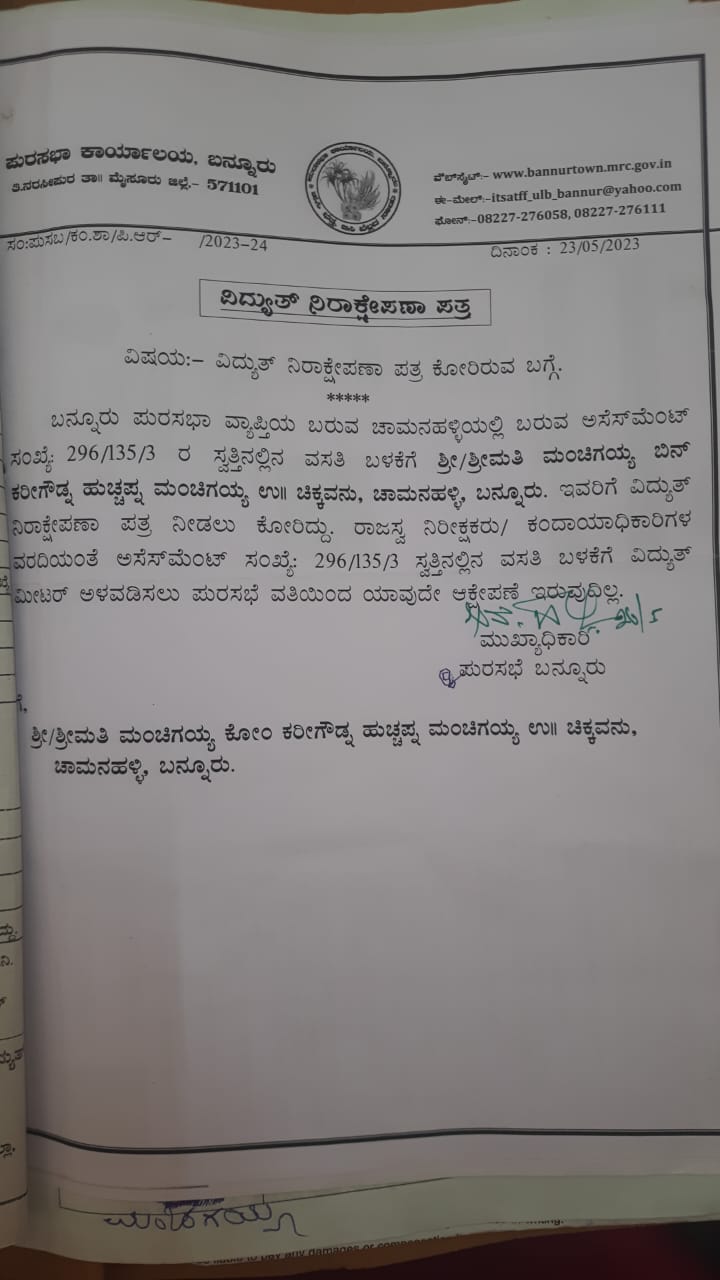 ಪುರಸಭಾ ಕಾರ್ಯಾಲಯ, ಬನ್ನೂರು
ತಿ.ನರಸೀಪುರ ತಾ॥ ಮೈಸೂರು ಜಿಲ್ಲೆ.- 571101
ವೆಬ್‌ಸೈಟ್:- www.bannurtown.mrc.gov.in
ಈ-ಮೇಲ್:-itsatff_ulb_bannur@yahoo.com
ಫೋನ್:-08227-276058, 08227-276111
ಸಂ:ಪುಸಬ/ಕಂ.ಶಾ/ಪಿ.ಆರ್- /2023-24
ದಿನಾಂಕ : 23/05/2023
ವಿದ್ಯುತ್ ನಿರಾಕ್ಷೇಪಣಾ ಪತ್ರ
ವಿಷಯ:- ವಿದ್ಯುತ್ ನಿರಾಕ್ಷೇಪಣಾ ಪತ್ರ ಕೋರಿರುವ ಬಗ್ಗೆ.
*****
ಬನ್ನೂರು ಪುರಸಭಾ ವ್ಯಾಪ್ತಿಯ ಬರುವ ಚಾಮನಹಳ್ಳಿಯಲ್ಲಿ ಬರುವ ಅಸೆಸ್‌ಮೆಂಟ್
ಸಂಖ್ಯೆ: 296/135/3 ರ ಸ್ವತ್ತಿನಲ್ಲಿನ ವಸತಿ ಬಳಕೆಗೆ ಶ್ರೀ/ಶ್ರೀಮತಿ ಮಂಚಿಗಯ್ಯ ಬಿನ್
ಕರೀಗೌಡ್ನ ಹುಚ್ಚಪ್ನ ಮಂಚಿಗಯ್ಯ ಉ॥ ಚಿಕ್ಕವನು, ಚಾಮನಹಳ್ಳಿ, ಬನ್ನೂರು. ಇವರಿಗೆ ವಿದ್ಯುತ್
ನಿರಾಕ್ಷೇಪಣಾ ಪತ್ರ ನೀಡಲು ಕೋರಿದ್ದು. ರಾಜಸ್ವ ನಿರೀಕ್ಷಕರು/ ಕಂದಾಯಾಧಿಕಾರಿಗಳ
ವರದಿಯಂತೆ ಅಸೆಸ್‌ಮೆಂಟ್ ಸಂಖ್ಯೆ: 296/135/3 ಸ್ವತ್ತಿನಲ್ಲಿನ ವಸತಿ ಬಳಕೆಗೆ ವಿದ್ಯುತ್
ಮೀಟರ್ ಅಳವಡಿಸಲು ಪುರಸಭೆ ವತಿಯಿಂದ ಯಾವುದೇ ಆಕ್ಷೇಪಣೆ ಇರುವುದಿಲ್ಲ.
ಮುಖ್ಯಾಧಿಕಾರಿ
ಪುರಸಭೆ ಬನ್ನೂರು
ಗೆ,
ಶ್ರೀ/ಶ್ರೀಮತಿ ಮಂಚಿಗಯ್ಯ ಕೋಂ ಕರೀಗೌಡ್ನ ಹುಚ್ಚಪ್ನ ಮಂಚಿಗಯ್ಯ ಉ॥ ಚಿಕ್ಕವನು,
ಚಾಮನಹಳ್ಳಿ, ಬನ್ನೂರು.
ಮಂಚಿಗಯ್ಯ
any damages or